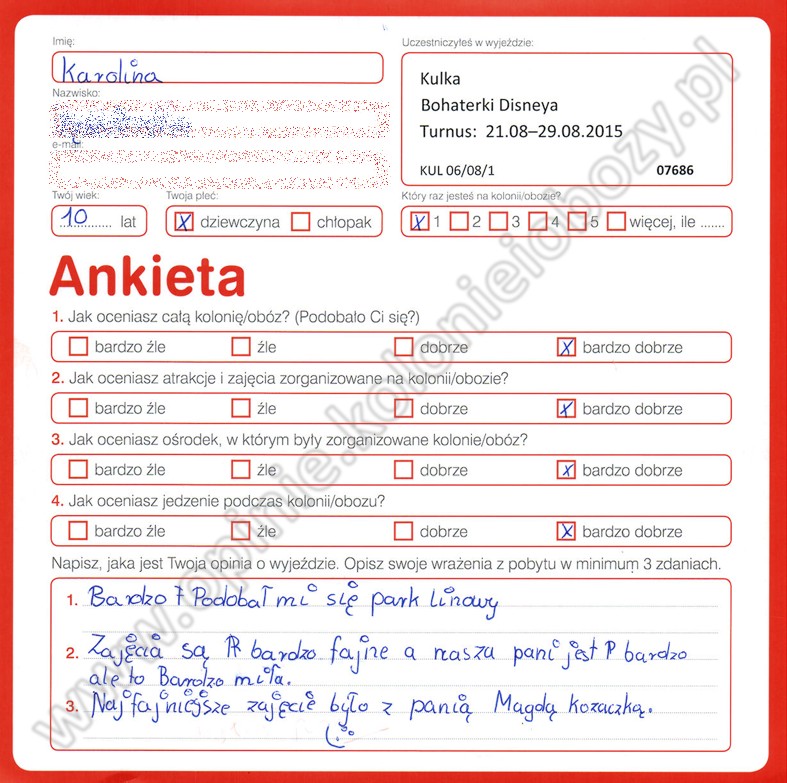 Imię:
Karolina
Nazwisko:
e-mail:
Uczestniczyłeś w wyjeździe:
Kulka
Bohaterki Disneya
Turnus: 21.08–29.08.2015
KUL 06/08/1 07686
Twój wiek: Twoja płeć: Który raz jesteś na kolonii/obozie?
10 lat X dziewczyna chłopak X 1 2 3 4 5 więcej, ile .......
Ankieta
1. Jak oceniasz całą kolonię/obóz? (Podobało Ci się?)
bardzo źle źle dobrze X bardzo dobrze
2. Jak oceniasz atrakcje i zajęcia zorganizowane na kolonii/obozie?
bardzo źle źle dobrze X bardzo dobrze
3. Jak oceniasz ośrodek, w którym były zorganizowane kolonie/obóz?
bardzo źle źle dobrze X bardzo dobrze
4. Jak oceniasz jedzenie podczas kolonii/obozu?
bardzo źle źle dobrze X bardzo dobrze
Napisz, jaka jest Twoja opinia o wyjeździe. Opisz swoje wrażenia z pobytu w minimum 3 zdaniach.
1. Bardzo Podobał mi się park linowy
2. Zajęcia są bardzo fajne a nasza pani jest bardzo
ale to Bardzo miła.
3. Najfajniejsze zajęcie było z panią Magdą kozaczką.
www.opinie.kolonieiobozy.pl